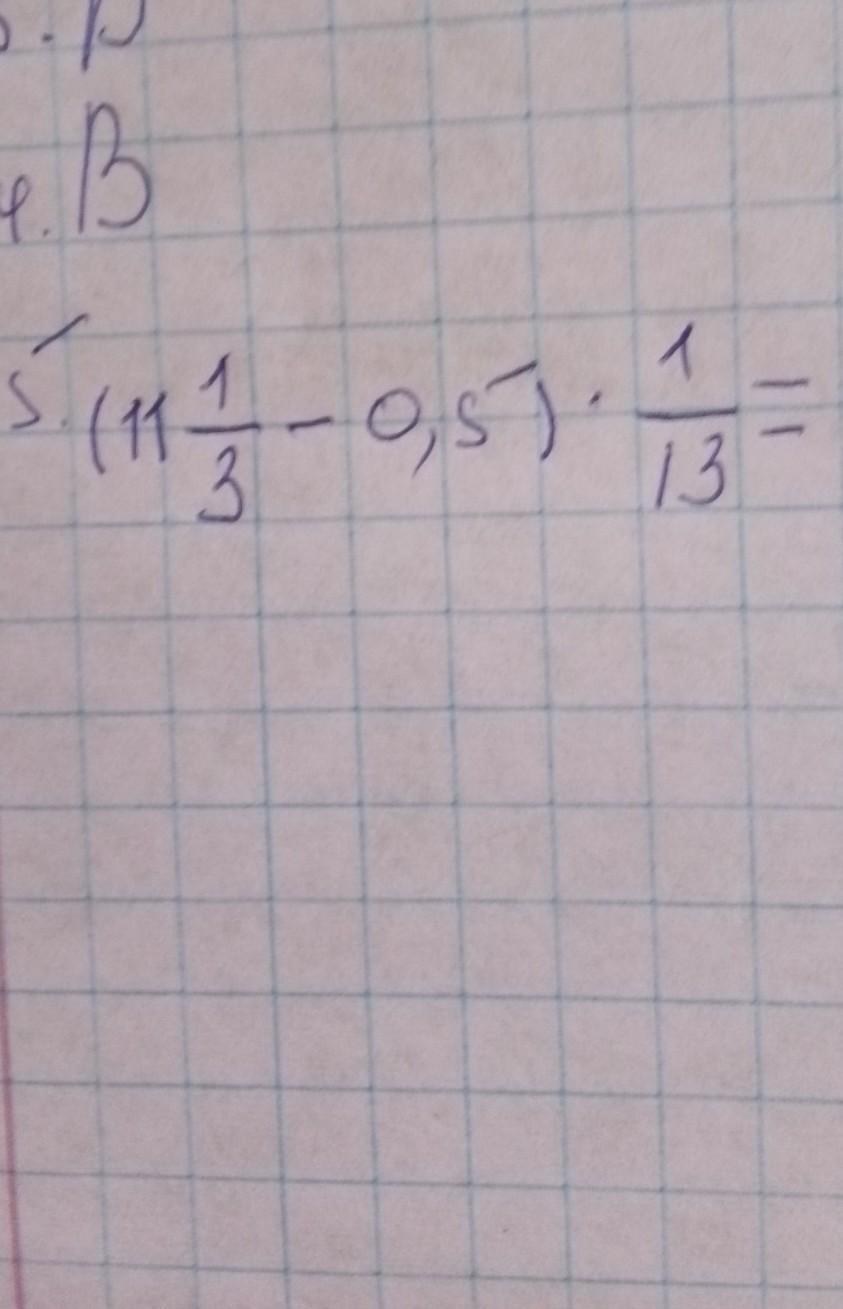 4. В
5. (11 1/3 - 0,5) · 1/13 =